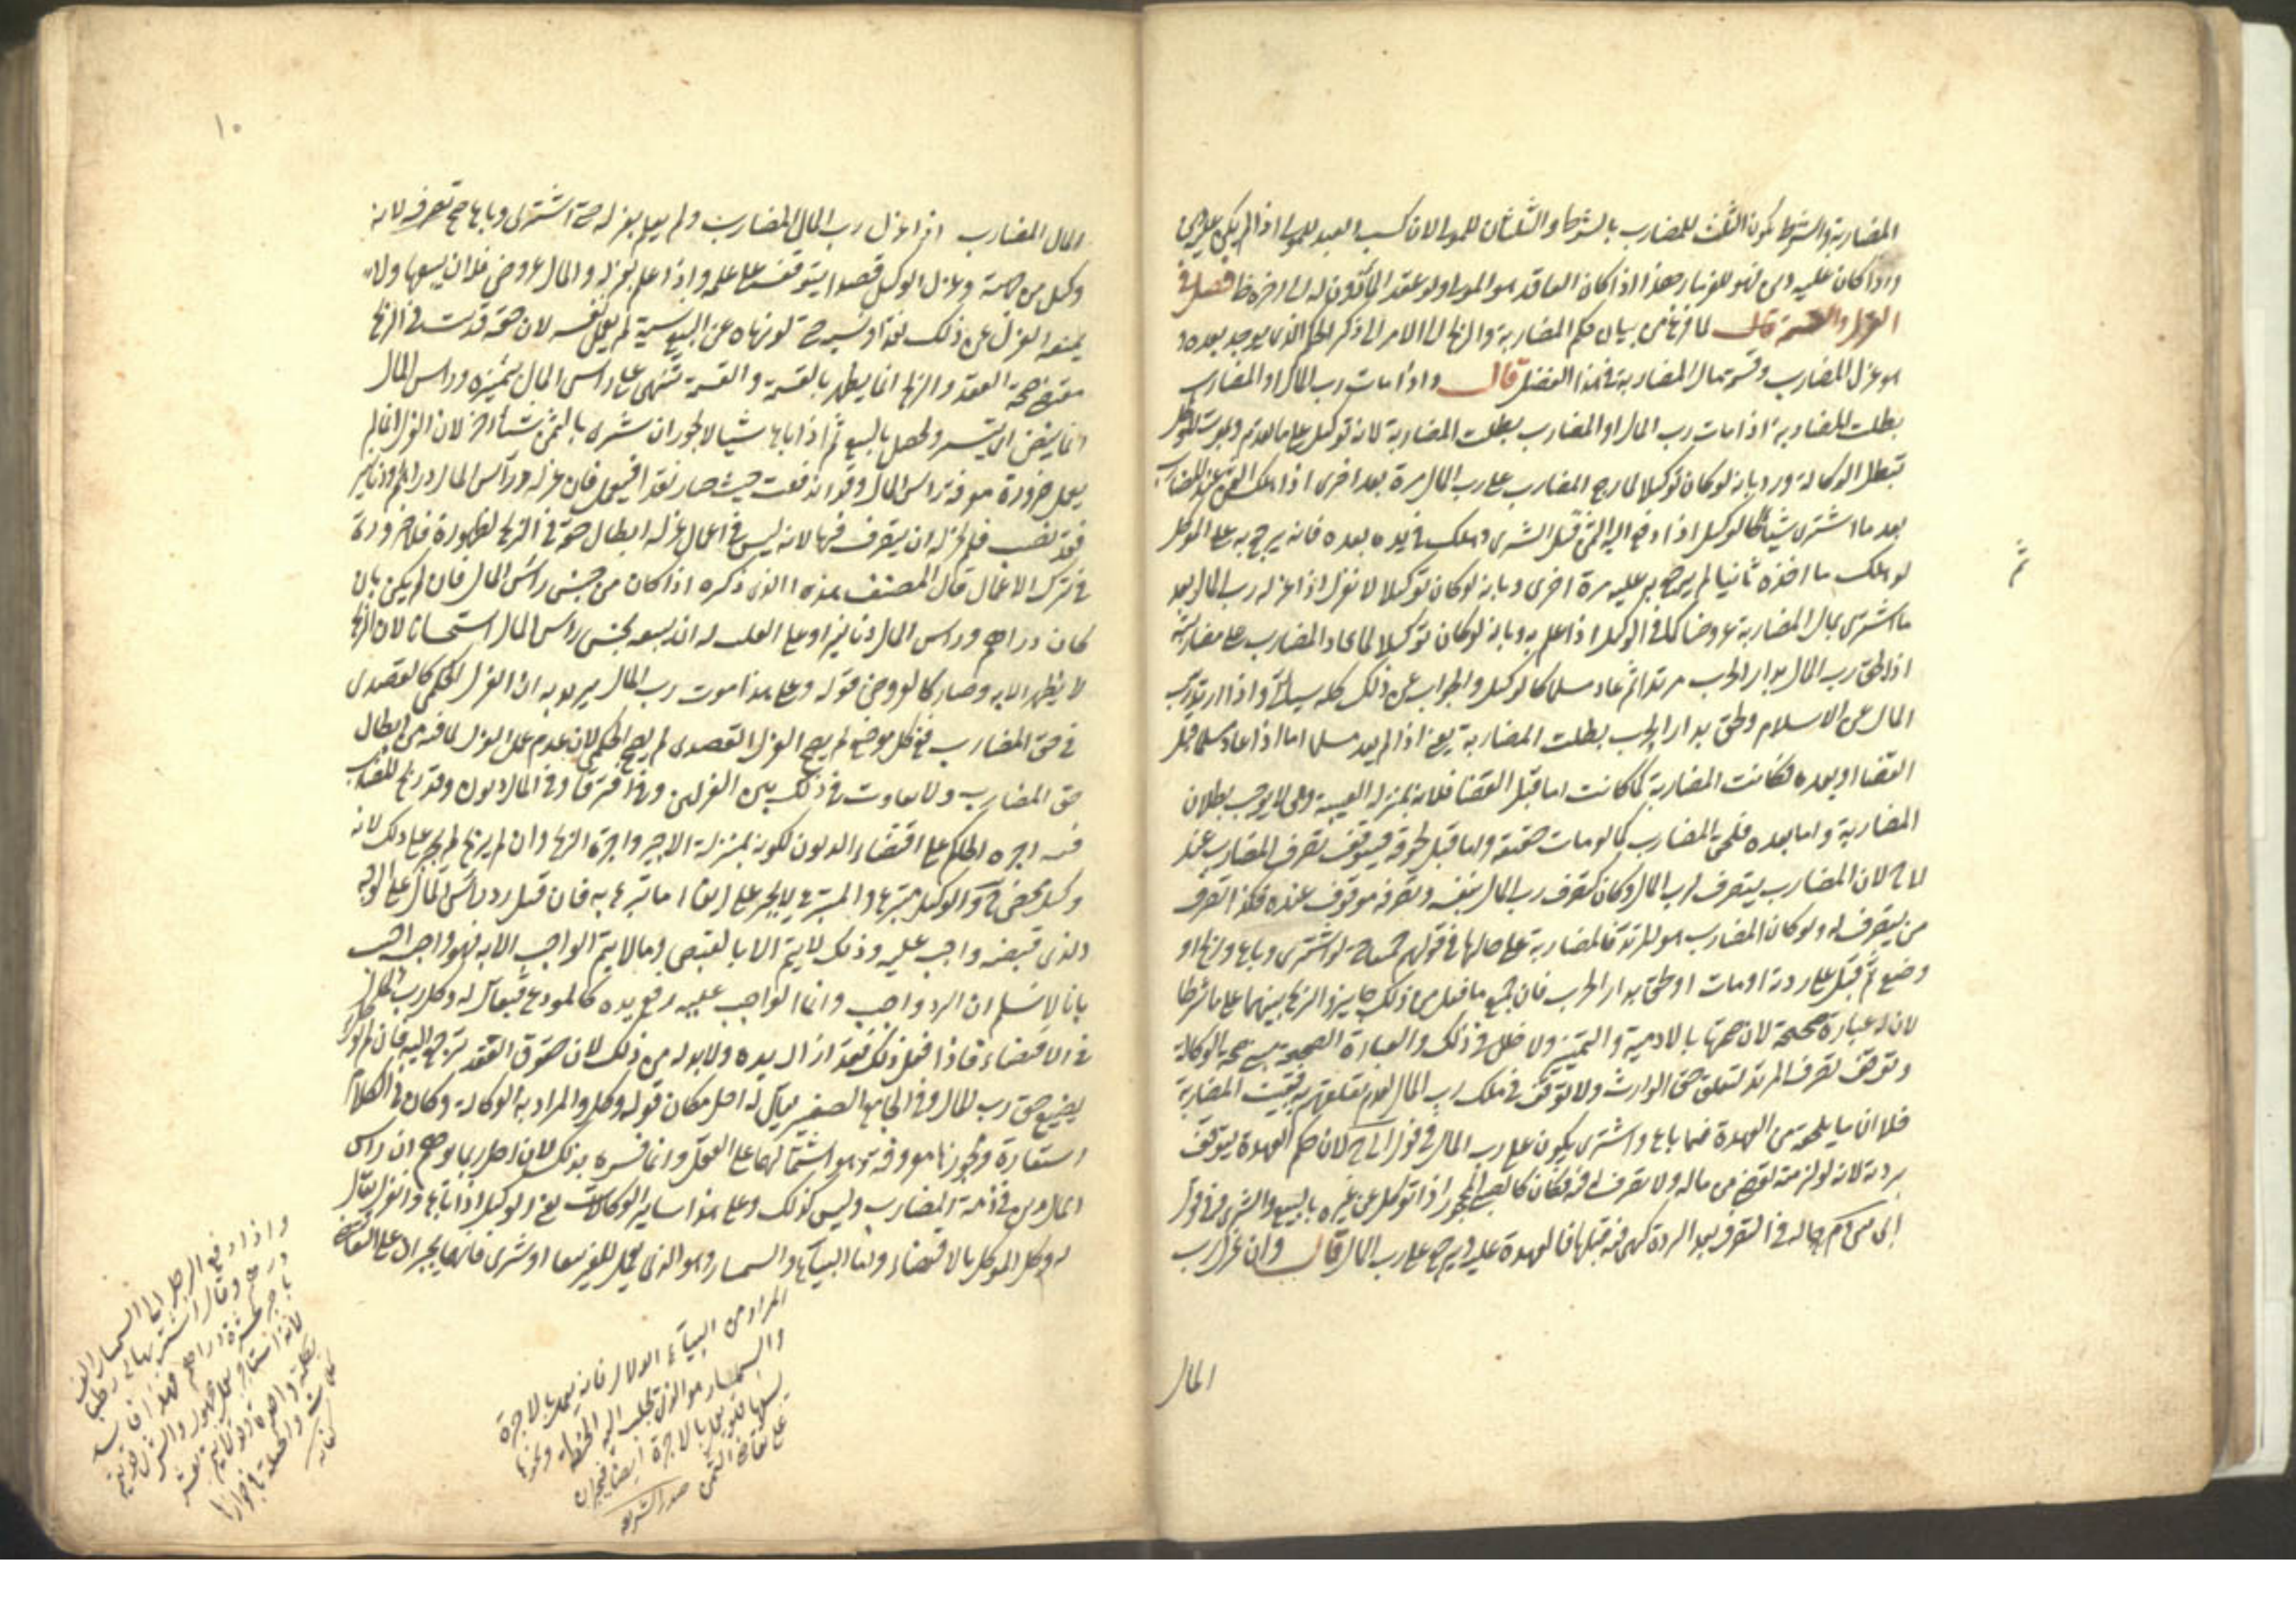 المضاربة والشرط يكون الثلث للمضارب بالشرط والثلثان للمولى لان كسب العبد للمولى اذا لم يكن عليه دين
واذا كان عليه دين فهو للغرماء هذا اذا كان العاقد هو المولى ولو عقد المأذون له الى اخره ظاهر فصل في
العزل والقسمة قال لما فرغ من بيان حكم المضاربة والربح ال الامر الى ذكر الحكم الذي يوجد بعده و
هو عزل المضارب وقسمة مال المضاربة في هذا الفصل قال واذا مات رب المال او المضارب
بطلت المضاربة اذا مات رب المال او المضارب بطلت المضاربة لانه توكيل على ما تقدم وبموت الموكل
تبطل الوكالة ورد بانه لو كان توكيلا لما رجع المضارب على رب المال مرة بعد اخرى اذا هلك الثمن عند المضارب
بعد ما اشترى شيئا كالوكيل اذا دفع اليه الثمن قبل الشرى وهلك في يده بعده فانه يرجع به على الموكل
ثم لو هلك ما اخذه ثانيا لم يرجع به عليه مرة اخرى وبانه لو كان توكيلا لانعزل اذا عزله رب المال بعد
ما اشترى بمال المضاربة عروضا كما في الوكيل اذا علم به وبانه لو كان توكيلا لما عاد المضارب على مضاربته
اذا لحق رب المال بدار الحرب مرتدا ثم عاد مسلما كالوكيل والجواب عن ذلك كله سيأتي واذا ارتد رب
المال عن الاسلام ولحق بدار الحرب بطلت المضاربة يعني اذا لم يعد مسلما اما اذا عاد مسلما قبل
القضا او بعده فكانت المضاربة كما كانت اما قبل القضا فلانه بمنزلة الغيبة وهي لا يوجب بطلان
المضاربة واما بعده فلحق المضارب كما لو مات حقيقة واما قبل لحوقه فيتوقف تصرف المضارب عند
لاح لان المضارب يتصرف لرب المال وكان كتصرف رب المال بنفسه وتصرفه موقوف عنده فكذا تصرف
من يتصرف له ولو كان المضارب هو المرتد فالمضاربة على حالها في قولهم جميعا حتى لو اشترى وباع وربح او
وضع ثم قتل على ردته او مات او لحق بدار الحرب فان جميع ما فعل من ذلك جايز والربح بينهما على ما شرطا
لان له عبارة صحيحة لان صحتها بالادمية والتمييز ولا خلل في ذلك والعبارة الصحيحة مبنى صحة الوكالة
وتوقف تصرف المرتد لتعلق حق الوارث ولا توقف في ملك رب المال لعدم تعلقهم به فبقيت المضاربة
فلا ان ما يلحقه من العهدة فيما باع واشترى يكون على رب المال في قول ابي ح لان حكم العهدة يتوقف
بردته لانه لو لزمته لقضى من ماله ولا تصرف له فيه فكان كالصبي المحجور اذا توكل عن غيره بالبيع والشرى وفي قول
ابي س م حاله في التصرف بعد الردة كهي فيه قبلها فالعهدة عليه ويرجع على رب المال قال وان عزل رب
المال
ثم
١٠
المال المضارب اذا عزل رب المال المضارب ولم يعلم بعزله حتى اشترى وباع صح تصرفه لانه
وكيل من جهته وعزل الوكيل قصدا يتوقف على علمه واذا علم بعزله والمال عروض فله ان يبيعها ولا
يمنعه العزل عن ذلك نقدا ونسية حتى لو نهاه عن البيع نسية لم يعمل نهيه لان حقه قد ثبت في الربح
بمقتضى صحة العقد والربح انما يظهر بالقسمة والقسمة تنبني على راس المال بتمييزه وراس المال
انما ينض اي يتيسر ويحصل بالبيع ثم اذا باع شيا لا يجوز ان يشترى بالثمن شيأ اخر لان العزل انما لم
يعمل ضرورة معرفة راس المال وقد اندفعت حيث صار نقدا فيعمل فان عزله وراس المال دراهم ودنانير
فقد نضت فلم يجز له ان يتصرف فيها لانه ليس في اعمال عزله ابطال حقه في الربح لظهوره فلا ضرورة
في ترك الاعمال قال المصنف هذا الذي ذكره اذا كان من جنس راس المال فان لم يكن بان
كان دراهم وراس المال دنانير او على القلب له ان يبيعه بجنس راس المال استحسانا لان الربح
لا يظهر الا به وصار كالعروض قوله وعلى هذا موت رب المال يريد به ان العزل الحكمي كالقصدي
في حق المضارب ففي كل موضع لم يصح العزل القصدي لم يصح الحكمي لان عدم عمل العزل لما فيه من ابطال
حق المضارب ولا تفاوت في ذلك بين العزلين وان افترقا وفي المال ديون وقد ربح المضارب
فيه اجبره الحاكم على اقتضاء الديون لكونه بمنزلة الاجير واجرته الربح وان لم يربح لم يجبر على ذلك لانه
وكيل محض ح والوكيل متبرع والمتبرع لا يجبر على ايفا ما تبرع به فان قيل رد راس المال على الوجه
الذي قبضه واجب عليه وذلك لا يتم الا بالقبض وما لا يتم الواجب الا به فهو واجب اجيب
بانا لا نسلم ان الرد واجب وانما الواجب عليه رفع يده كالمودع فيقال له وكل رب المال
في الاقتضاء فاذا فعل ذلك فقد ازال يده ولا بد له من ذلك لان حقوق العقد ترجع اليه فان لم يوكل
يضيع حق رب المال وفي الجامع الصغير يقال له احل مكان قوله وكل والمراد به الوكالة وكان في الكلام
استعارة ومجوزها معروف وهو اشتمالهما على النقل وانما فسره بذلك لان احل ربما يوهم ان راس
المال دين في ذمة المضارب وليس كذلك وعلى هذا ساير الوكالات يعني الوكيل اذا باع وانعزل يقال
له وكل الموكل بالاقتضاء واما البياع والسمسار وهو الذي يعمل للغير بيعا او شرى فانهما يجبران على التقاضي
المراد من البياع الدلال فانه يعمل بالاجرة
والسمسار هو الذي تجلب اليه الحنطة ونحوها
ليبيعها فهو يعمل بالاجرة ايضا فيجبران
على تقاضي الثمن صدر الشريعة
واذا دفع الرجل الى السمسار الف
درهم وقال اشتر بها لي
باجر عشرة دراهم فهذا فاسد
لانه استاجره لعمل مجهول والشرى قد يتم
بكلمة واحدة وقد لا يتم بعشر
كلمات
كفايه